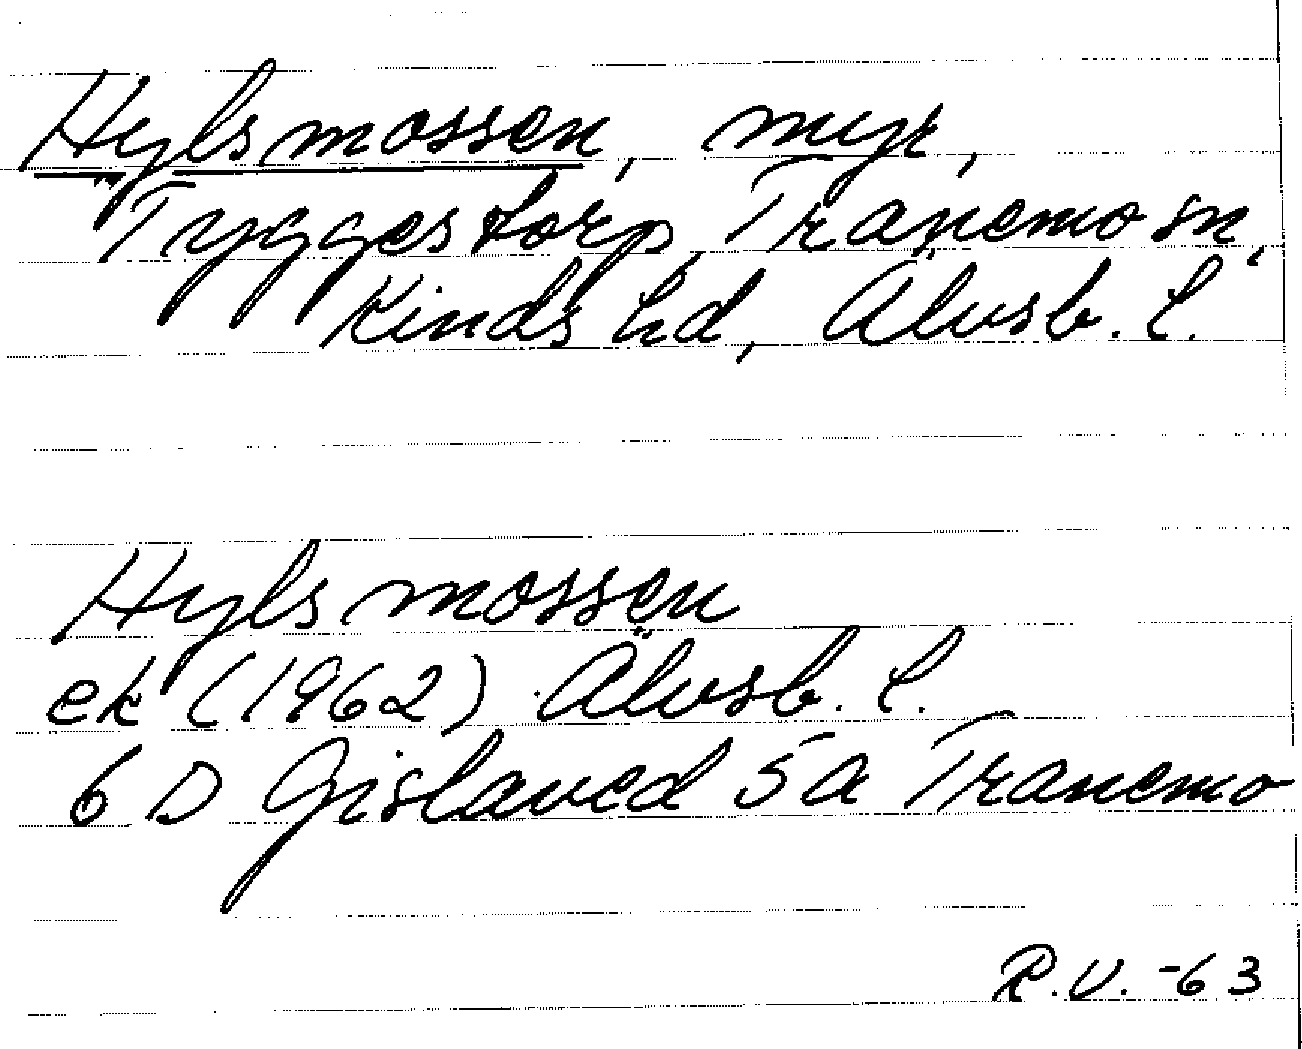 Hylsmossen, myr,
Tyggestorp, Tranemo sn,
Kinds hd, Älvsb. l.
Hylsmossen
ek (1962) Älvsb. l.
6 D Gislaved 5 a Tranemo
R.V. -63